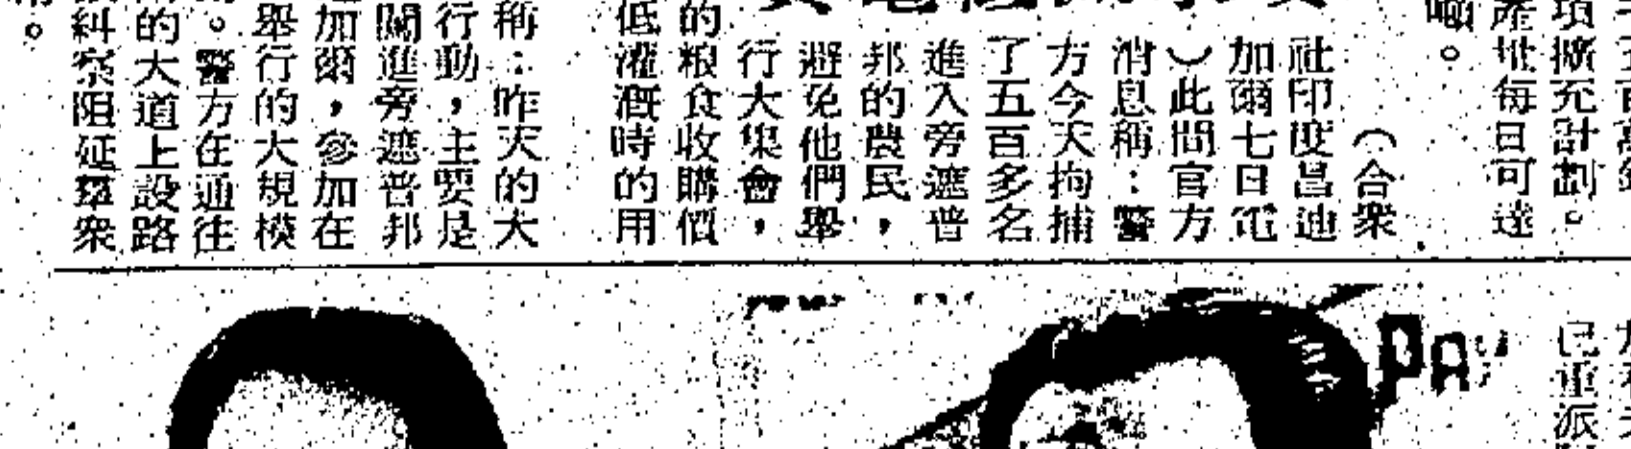 項擴充計劃。
產批每日可達
噸。
（合衆
社印度昌迪
加爾七日電
）此間官方
消息稱：警
方今天拘捕
了五百多名
進入旁遮普
邦的農民，
避免他們舉
行大集會，
的粮食收購價
低灌溉時的用
稱：昨天的大
行動，主要是
闖進旁遮普邦
加爾，參加在
舉行的大規模
。警方在通往
的大道上設路
糾察阻延羣衆
。
民重派
PAU